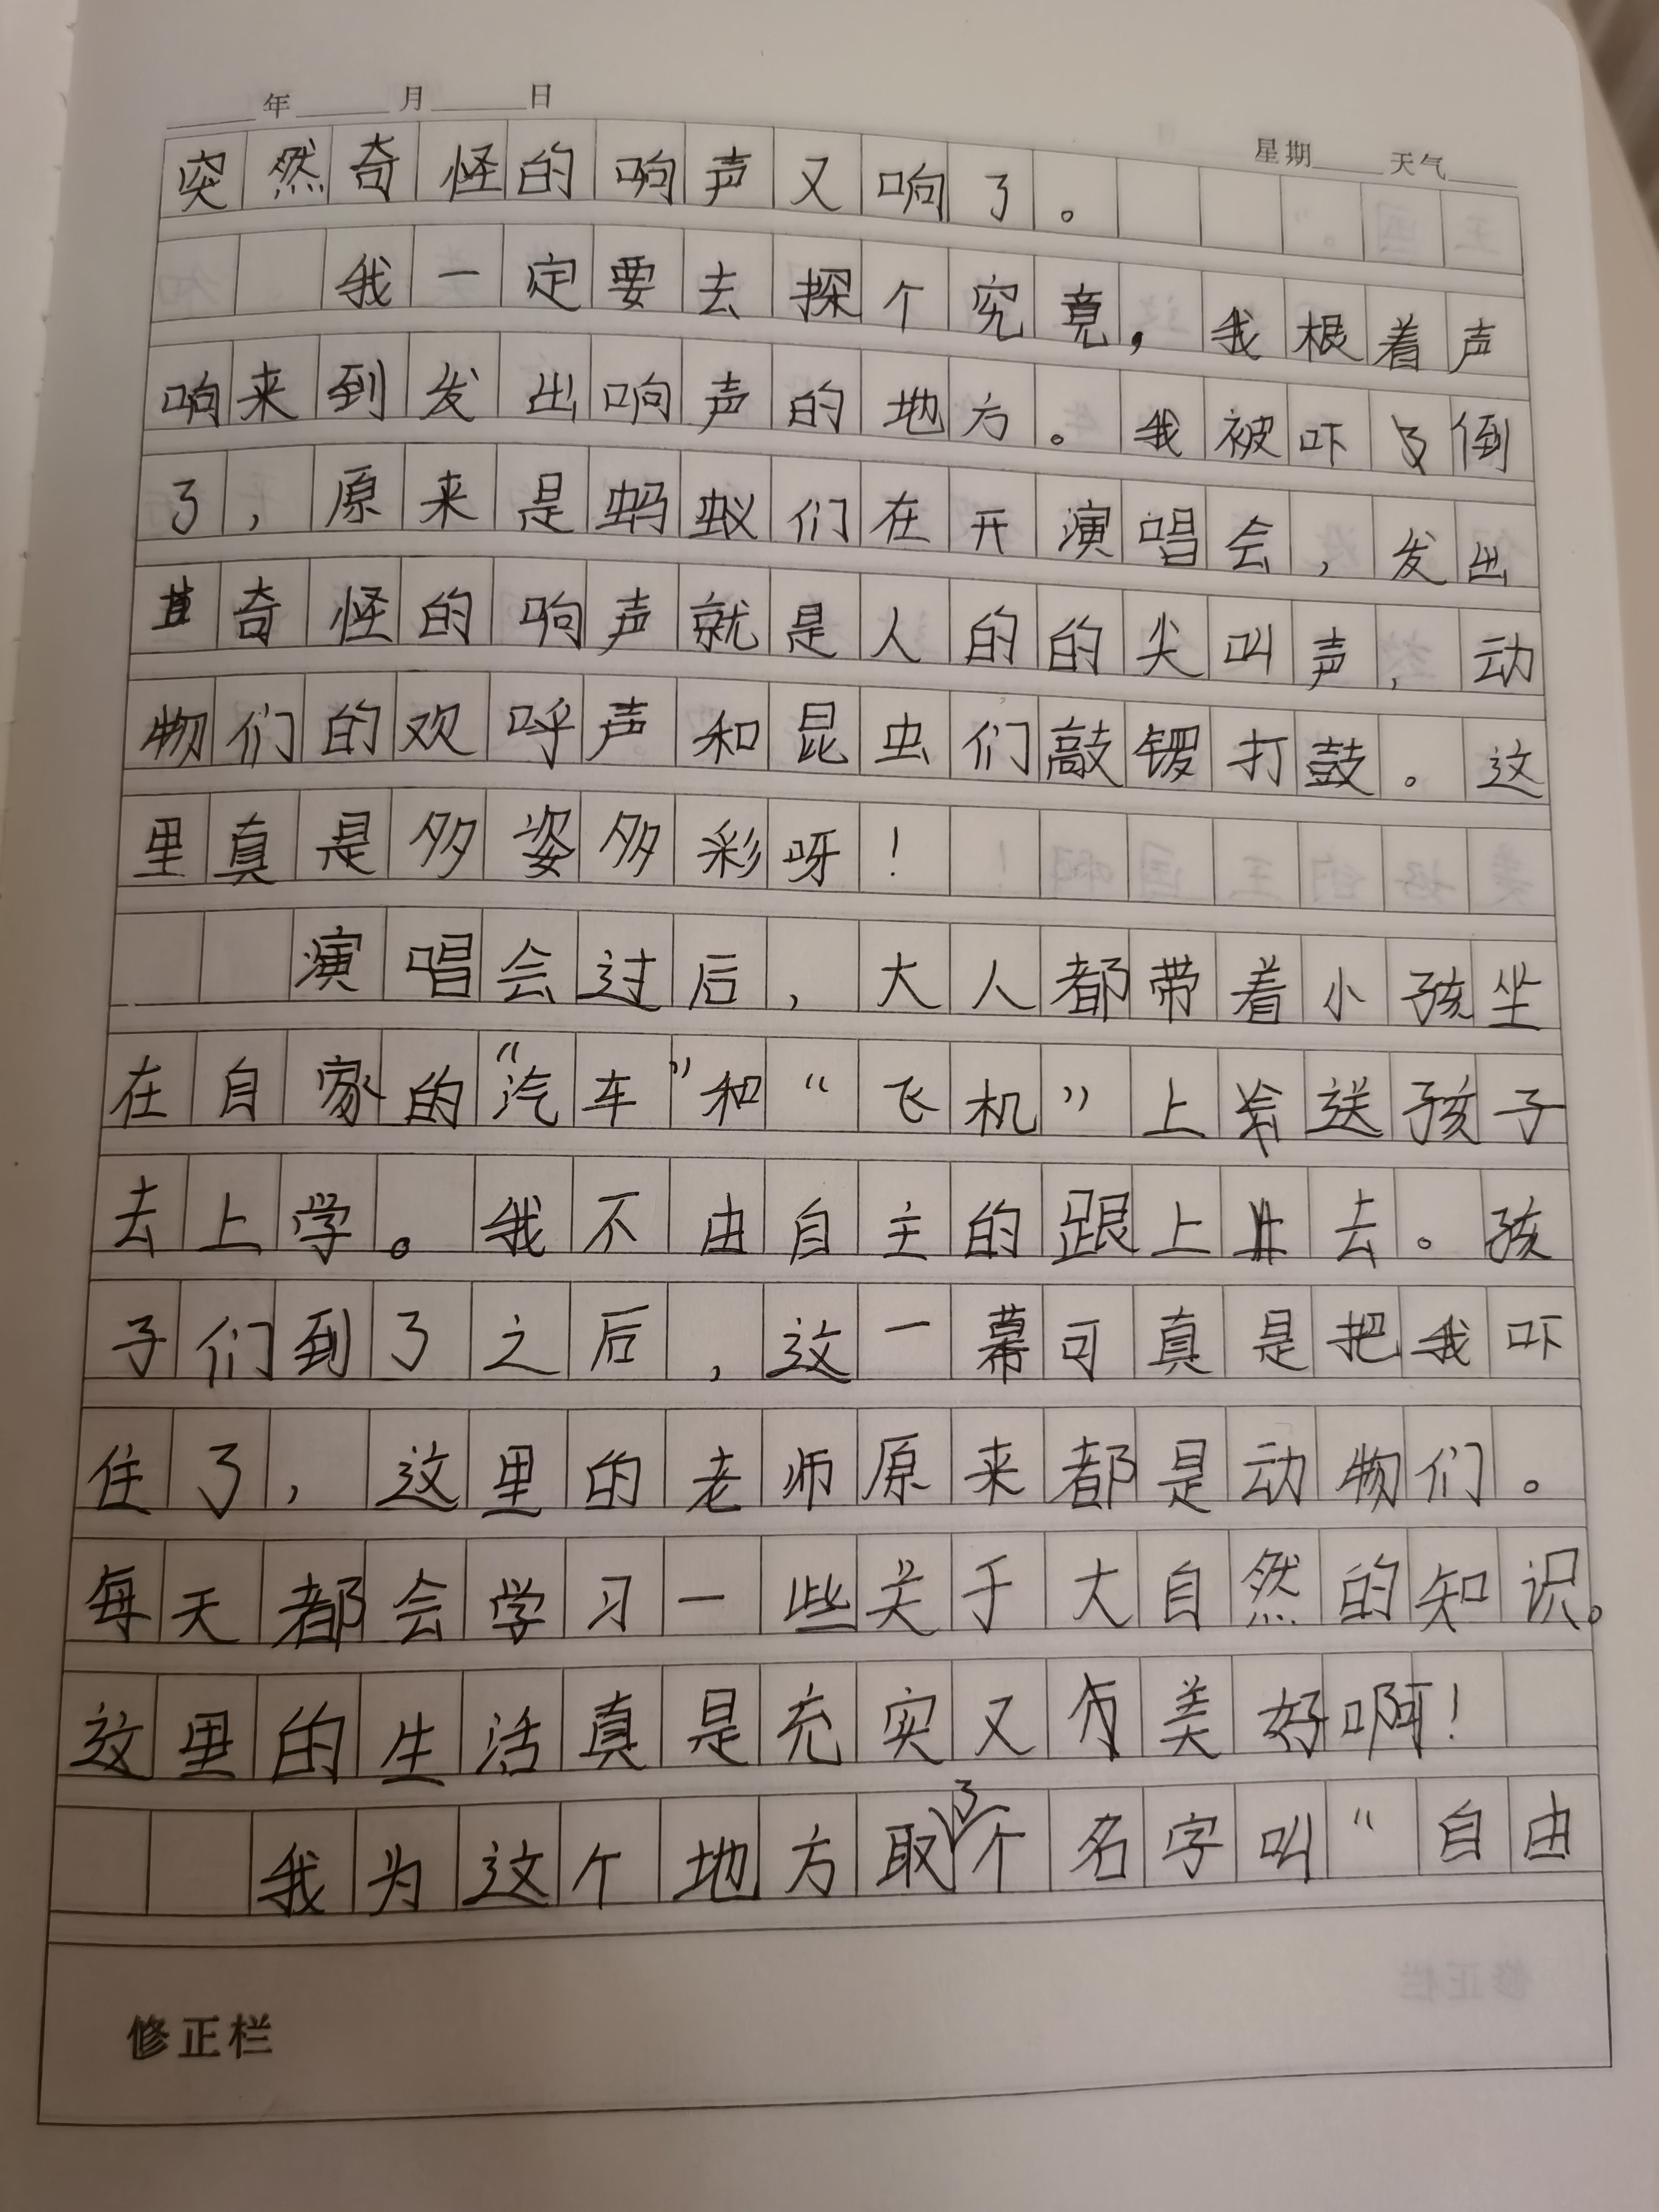 年 月 日
星期 天气
突然奇怪的响声又响了。
我一定要去探个究竟，我根着声
响来到发出响声的地方。我被吓倒
了，原来是蚂蚁们在开演唱会，发出
奇怪的响声就是人的的尖叫声，动
物们的欢呼声和昆虫们敲锣打鼓。这
里真是多姿多彩呀！
演唱会过后，大人都带着小孩坐
在自家的“汽车”和“飞机”上送孩子
去上学。我不由自主的跟上去。孩
子们到了之后，这一幕可真是把我吓
住了，这里的老师原来都是动物们。
每天都会学习一些关于大自然的知识。
这里的生活真是充实又美好啊！
我为这个地方取了个名字叫“自由
修正栏